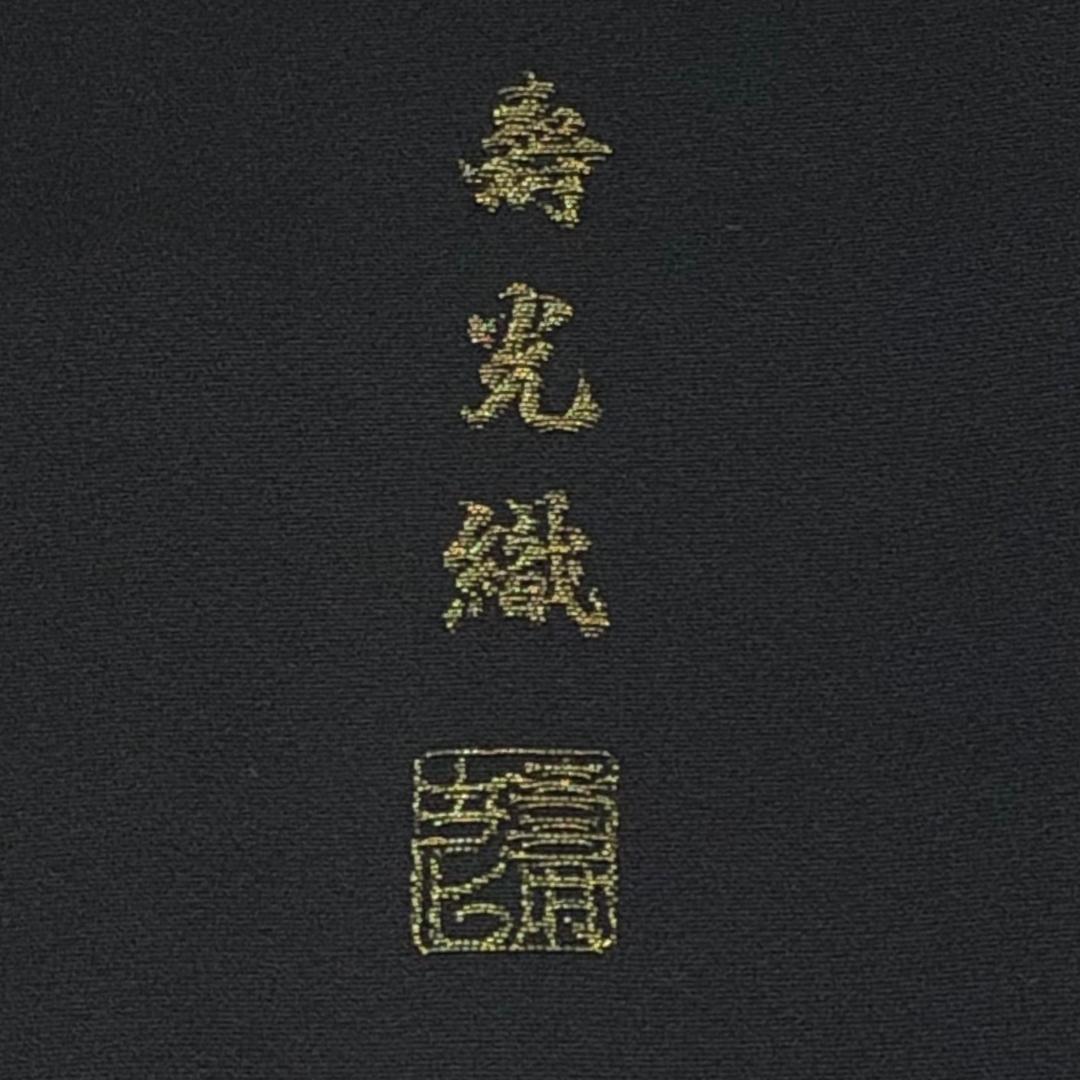 壽光織